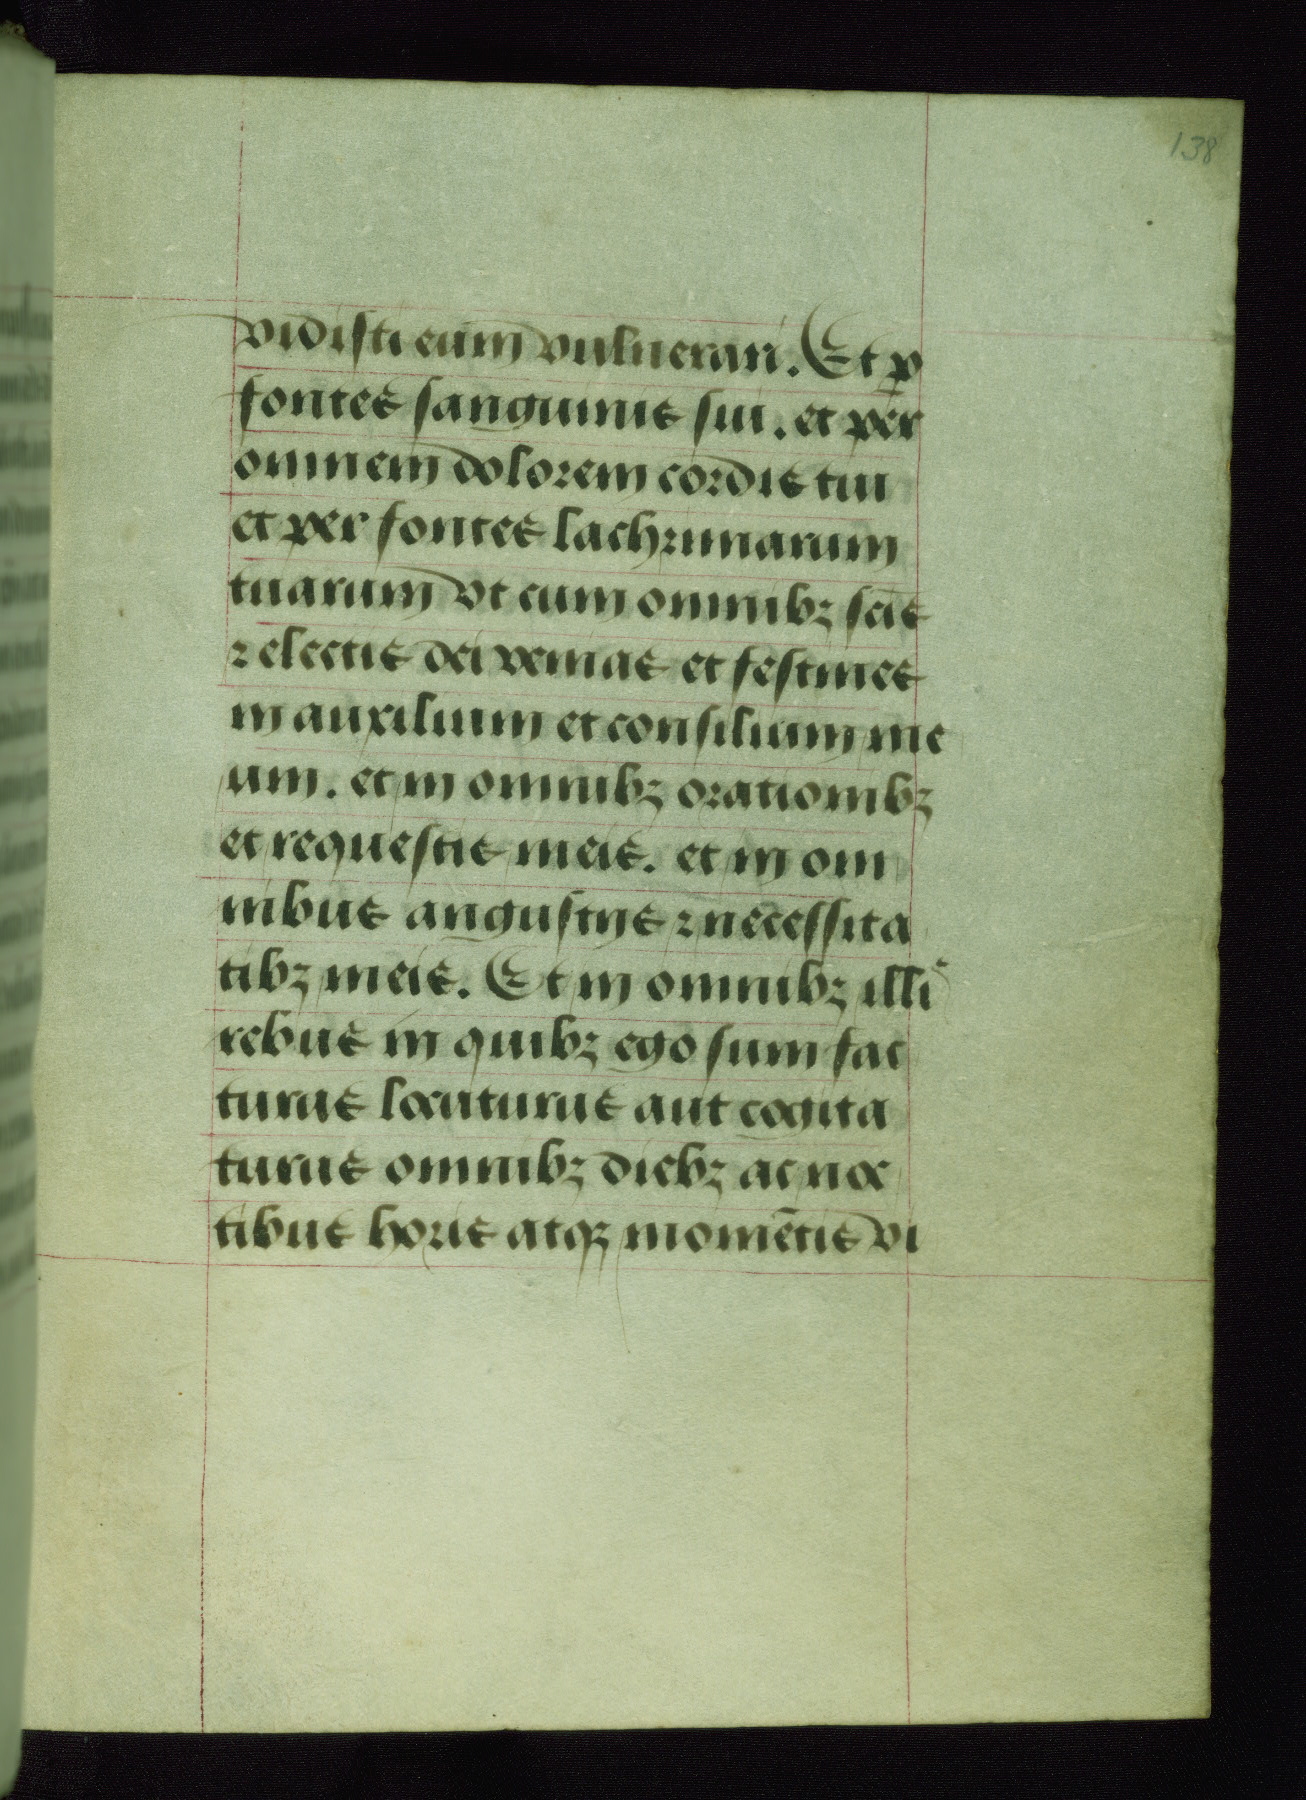 138
vidisti eum vulnerari. Et ꝑ
fontes sanguinis sui. et per
omnem dolorem cordis tui
et per fontes lachrimarum
tuarum vt cum omnibꝫ scīs
⁊ electis dei venias et festines
in auxilium et consilium me
um. et in omnibꝫ orationibꝫ
et requestis meis. et in om
nibus angustijs ⁊ necessita
tibꝫ meis. Et in omnibꝫ illis
rebus in quibꝫ ego sum fac
turus locuturus aut cogita
turus omnibꝫ diebꝫ ac noc
tibus horis atqꝫ momētis vi